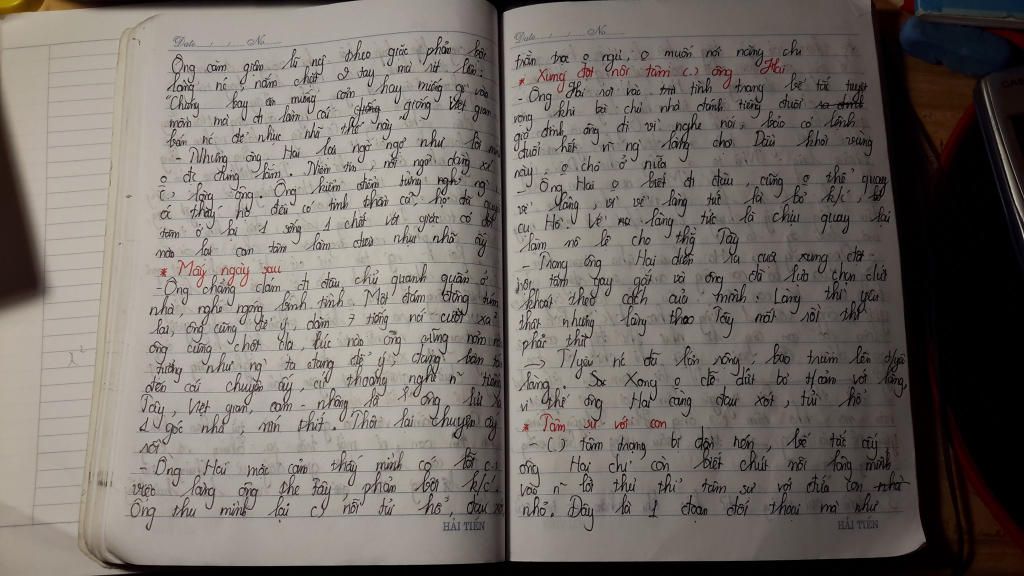 Date / / No
Ông căm giận lũ ng` theo giặc phản bội
làng nc, nắm chặt 2 tay mà rít lên:
"Chúng bay ăn miếng cơm hay miếng gì vào
mồm mà đi làm cái giống Việt gian
bán nc để nhục nhã thế này"
- Nhưng ông Hai lại ngờ ngợ như lời
o đc đúng lắm. Niềm tin, nỗi ngờ
làng ông. Ông kiểm điểm từng ng`
thấy họ đều có tinh thần cả, họ đã quyết
tâm ở lại 1 sống 1 chết với giặc có đời
nào lại can tâm làm điều nhục nhã ấy
* Mấy ngày sau
- Ông chẳng dám đi đâu chỉ quanh quẩn ở
nhà, nghe ngóng binh tình. Một đám đông túm
lại, ông cũng để ý, dăm 7 tiếng nói cười xa²
ông cũng chột dạ. Lúc nào ông cũng nơm nớp
tưởng như ng` ta đang để ý, đang bàn tán
đến cái chuyện ấy, cứ thoáng nghe n~ tiếng
Tây, Việt gian, cam - nhông là ông lủi ra
1 góc nhà, nín thít. Thôi lại chuyện ấy
rồi
- Ông Hai mặc cảm thấy mình có lỗi
việc làng ông theo Tây, phản bội k/c',
Ông thu mình lại nỗi tủi hổ, đau xót
HẢI TIẾN
λ²
Date / / No
trằn trọc o ngủ, o muốn nói năng chi
* Xung đột nội tâm ông Hai
- Ông Hai rơi vào tình trạng bế tắc tuyệt
vọng khi bà chủ nhà đánh tiếng đuổi
gia đình ông đi vì nghe nói, bảo có lệnh
đuổi hết n~ ng` làng chợ Dầu khỏi vùng
này, o cho ở nữa
Ông Hai o biết đi đâu, cũng o thể quay
về làng, vì về làng tức là bỏ k/c', bỏ
cụ Hồ. Về làng tức là chịu quay lại
làm nô lệ cho thằng Tây
- Trong ông Hai diễn ra cuộc xung đột
nội tâm gay gắt và ông đã lựa chọn dứt
khoát theo cách của mình: Làng thì yêu
thật nhưng làng theo Tây mất rồi thì
phải thù
→ T/yêu nc đã lớn rộng, bao trùm lên t/yêu
làng. Song o dễ dứt bỏ t/cảm với làng,
vì thế ông Hai càng đau xót, tủi hổ
* Tâm sự với con
- tâm trạng bị dồn nén, bế tắc ấy
ông Hai chỉ còn biết chút nỗi lòng mình
vào n~ lời thủ thỉ tâm sự với đứa con
nhỏ. Đây là 1 đoạn đối thoại mà như
HẢI TIẾN